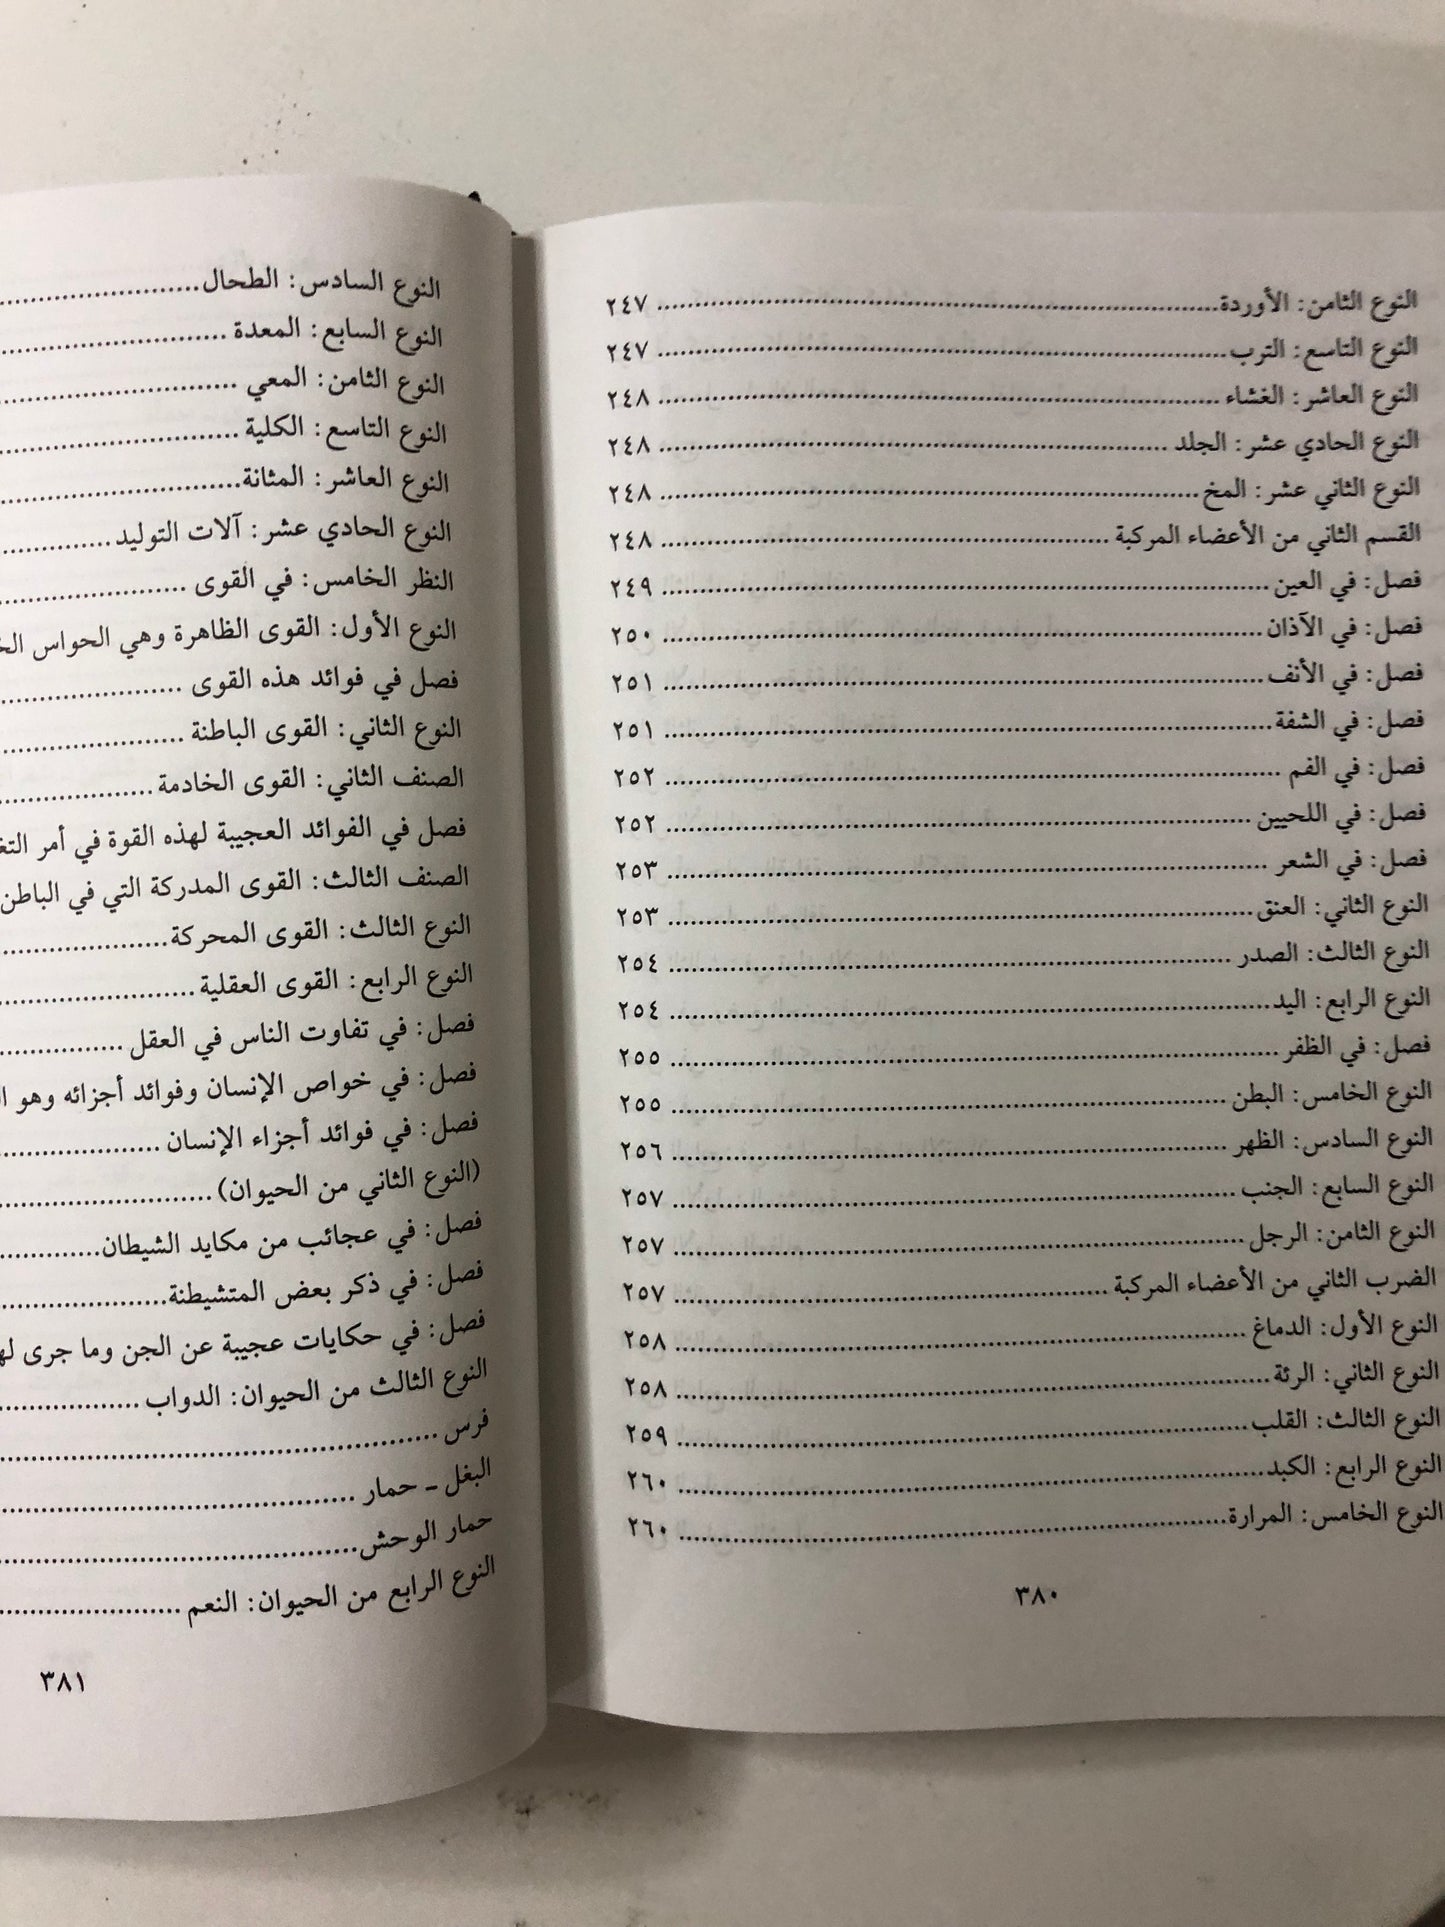 النوع الثامن: الأوردة ........ ٢٤٧
النوع التاسع: الترب ........ ٢٤٧
النوع العاشر: الغشاء ........ ٢٤٨
النوع الحادي عشر: الجلد ........ ٢٤٨
النوع الثاني عشر: المخ ........ ٢٤٨
القسم الثاني من الأعضاء المركبة ........ ٢٤٨
فصل: في العين ........ ٢٤٩
فصل: في الآذان ........ ٢٥٠
فصل: في الأنف ........ ٢٥١
فصل: في الشفة ........ ٢٥١
فصل: في الفم ........ ٢٥٢
فصل: في اللحيين ........ ٢٥٢
فصل: في الشعر ........ ٢٥٣
النوع الثاني: العنق ........ ٢٥٣
النوع الثالث: الصدر ........ ٢٥٤
النوع الرابع: اليد ........ ٢٥٤
فصل: في الظفر ........ ٢٥٥
النوع الخامس: البطن ........ ٢٥٥
النوع السادس: الظهر ........ ٢٥٦
النوع السابع: الجنب ........ ٢٥٧
النوع الثامن: الرجل ........ ٢٥٧
الضرب الثاني من الأعضاء المركبة ........ ٢٥٧
النوع الأول: الدماغ ........ ٢٥٨
النوع الثاني: الرئة ........ ٢٥٨
النوع الثالث: القلب ........ ٢٥٩
النوع الرابع: الكبد ........ ٢٦٠
النوع الخامس: المرارة ........ ٢٦٠
٣٨٠
النوع السادس: الطحال ........
النوع السابع: المعدة ........
النوع الثامن: المعي ........
النوع التاسع: الكلية ........
النوع العاشر: المثانة ........
النوع الحادي عشر: آلات التوليد ........
النظر الخامس: في القوى ........
النوع الأول: القوى الظاهرة وهي الحواس
فصل في فوائد هذه القوى ........
النوع الثاني: القوى الباطنة ........
الصنف الثاني: القوى الخادمة ........
فصل في الفوائد العجيبة لهذه القوة في أمر
الصنف الثالث: القوى المدركة التي في الباطن
النوع الثالث: القوى المحركة ........
النوع الرابع: القوى العقلية ........
فصل: في تفاوت الناس في العقل ........
فصل: في خواص الإنسان وفوائد أجزائه وهو
فصل: في فوائد أجزاء الإنسان ........
(النوع الثاني من الحيوان) ........
فصل: في عجائب من مكايد الشيطان ........
فصل: في ذكر بعض المتشيطنة ........
فصل: في حكايات عجيبة عن الجن وما جرى
النوع الثالث من الحيوان: الدواب ........
فرس ........
البغل ـ حمار ........
حمار الوحش ........
النوع الرابع من الحيوان: النعم ........
٣٨١